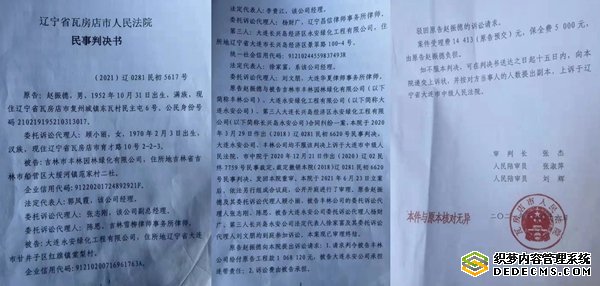 辽宁省瓦房店市人民法院
民事判决书
（2021）辽0281民初5617号
原告：赵振德，男，1952年10月31日出生，满族，现
住辽宁省瓦房店市复州城镇东瓦村民主屯6号。公民身份号
码210219195210313017。
委托诉讼代理人：顾小丽，女，1970年2月3日出生，
汉族，现住辽宁省瓦房店市育才路10号2-2-3。
被告：吉林市丰林园林绿化有限公司，住所地吉林省吉
林市船营区大绥河镇范家村二社。
企业信用代码：91220201724892921F。
法定代表人：郎凤霞，该公司经理。
委托诉讼代理人：张志刚，该公司副总经理。
委托诉讼代理人：陈恩，吉林雷柳律师事务所律师。
被告：大连永安绿化工程有限公司，住所地辽宁省大连
市甘井子区红旗镇棠梨村。
企业信用代码：91210200716961763A。
法定代表人：李贵江，该公司经理。
委托诉讼代理人：杨财广，辽宁昌信律师事务所律师。
第三人：大连长兴岛经济区永安绿化工程有限公司，住
所地辽宁省大连长兴岛经济区景萃路100-4号。
统一社会信用代码：91210244559837493B
法定代表人：徐家富，系该公司经理。
委托诉讼代理人：刘文朋，大连华夏律师事务所律师。
原告赵振德与被告吉林市丰林园林绿化有限公司（以下
简称丰林公司）、大连永安绿化工程有限公司（以下简称大
连永安公司）、第三人大连长兴岛经济区永安绿化工程有限
公司（以下简称长兴岛永安公司）合同纠纷一案，本院于2020
年3月29日作出（2018）辽0281民初6620号民事判决，
丰林公司均不服该判决上诉于大连市中级人民法院，
市中院于2020年12月21日作出（2020）辽02民
终7759号民事裁定，裁定撤销本院（2018）辽0281民初6620
号民事判决，发回本院重审。本院于2021年6月23日立案
后，依法另行组成合议庭，公开开庭进行了审理。原告赵振
德及其委托诉讼代理人顾小丽，被告丰林公司的委托诉讼代
理人张志刚、陈恩，被告大连永安公司委托诉讼代理人杨财
广，第三人长兴岛永安公司法定代表人徐家富及其委托诉讼
代理人刘文朋到庭参加诉讼，本案现已审理终结。
原告赵振德向本院提出诉讼请求：1.请求判令被告丰林
公司给付原告工程款1 068 120元，被告大连永安公司承担
连带责任；2.诉讼费由被告承担。
驳回原告赵振德的诉讼请求。
案件受理费14 413（原告预交）元，保全费5 000元，
由原告赵振德负担。
如不服本判决，可在判决书送达之日起十五日内，向本
院递交上诉状，并按对方当事人的人数提出副本，上诉于辽
宁省大连市中级人民法院。
审 判 长 张 杰
人民陪审员 张淑萍
人民陪审员 刘 辉
本件与原本核对无异
二〇二
织梦内容管理系统
DEDECMS.COM